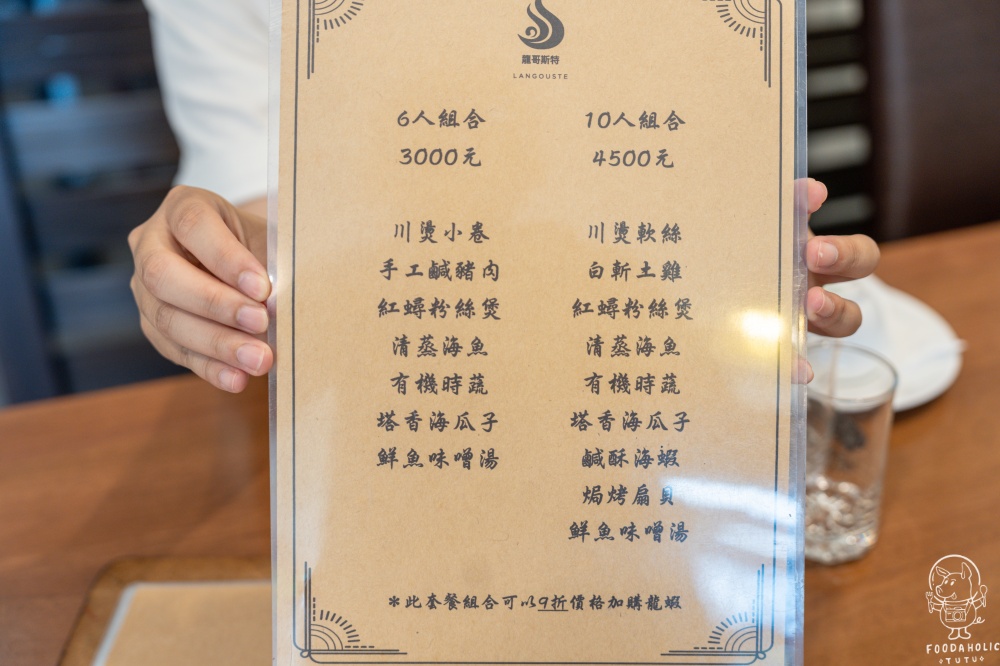 龍哥斯特
LANGOUSTE
6人組合
3000元
川燙小卷
手工鹹豬肉
紅蟳粉絲煲
清蒸海魚
有機時蔬
塔香海瓜子
鮮魚味噌湯
10人組合
4500元
川燙軟絲
白斬土雞
紅蟳粉絲煲
清蒸海魚
有機時蔬
塔香海瓜子
鹹酥海蝦
焗烤扇貝
鮮魚味噌湯
*此套餐組合可以9折價格加購龍蝦
FOODAHOLIC
TUTU